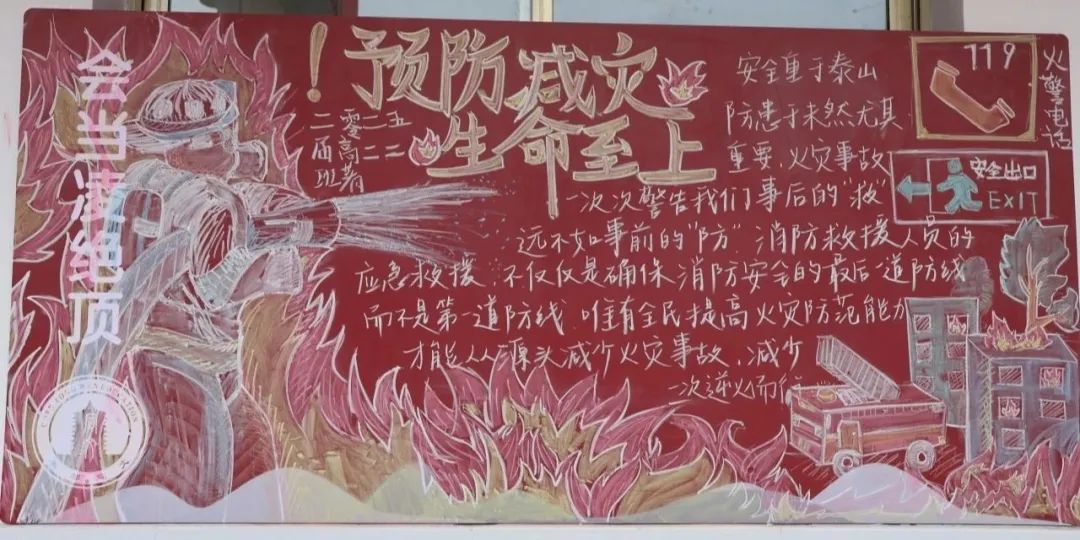 会当凌绝顶
！预防减灾
生命至上
二零二五
届高二二
班着
安全重于泰山
防患于未然尤其
重要，火灾事故
一次次警告我们事后的“救”
远不如事前的“防”消防救援人员的
应急救援，不仅仅是确保消防安全的最后一道防线
而不是第一道防线，唯有全民提高火灾防范能力
才能从源头减少火灾事故，减少
一次逆火而行
119
火警电话
安全出口
EXIT